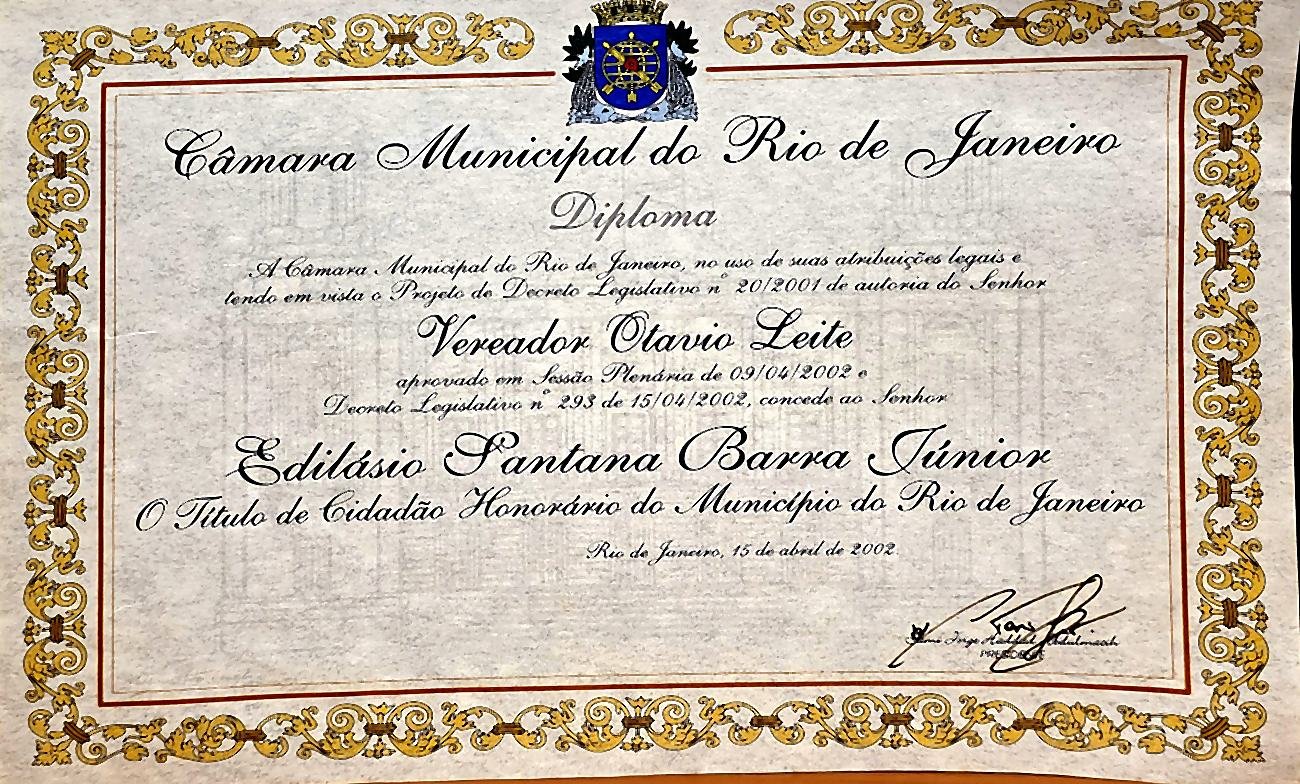 Câmara Municipal do Rio de Janeiro
Diploma
A Câmara Municipal do Rio de Janeiro, no uso de suas atribuições legais e
tendo em vista o Projeto de Decreto Legislativo nº 20/2001 de autoria do Senhor
Vereador Otavio Leite
aprovado em Sessão Plenária de 09/04/2002 e
Decreto Legislativo nº 293 de 15/04/2002, concede ao Senhor
Edilásio Santana Barra Júnior
O Título de Cidadão Honorário do Município do Rio de Janeiro
Rio de Janeiro, 15 de abril de 2002.
Jorge
PRESIDENTE